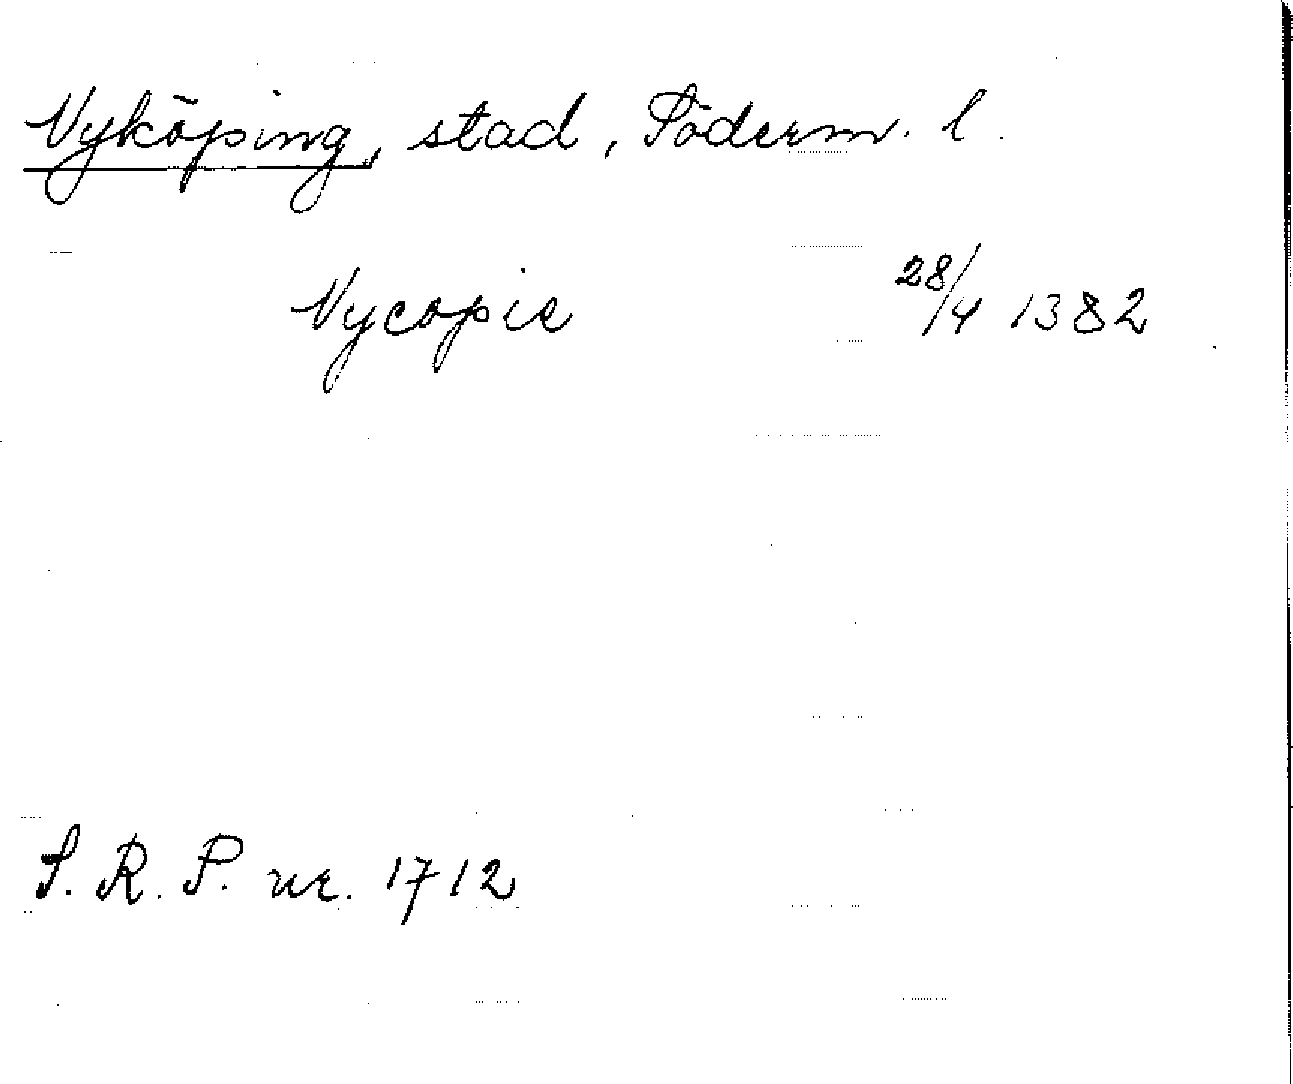 Nyköping, stad, Söderm. l.
Nycopie 28/4 1382
S. R. P. nr. 1712